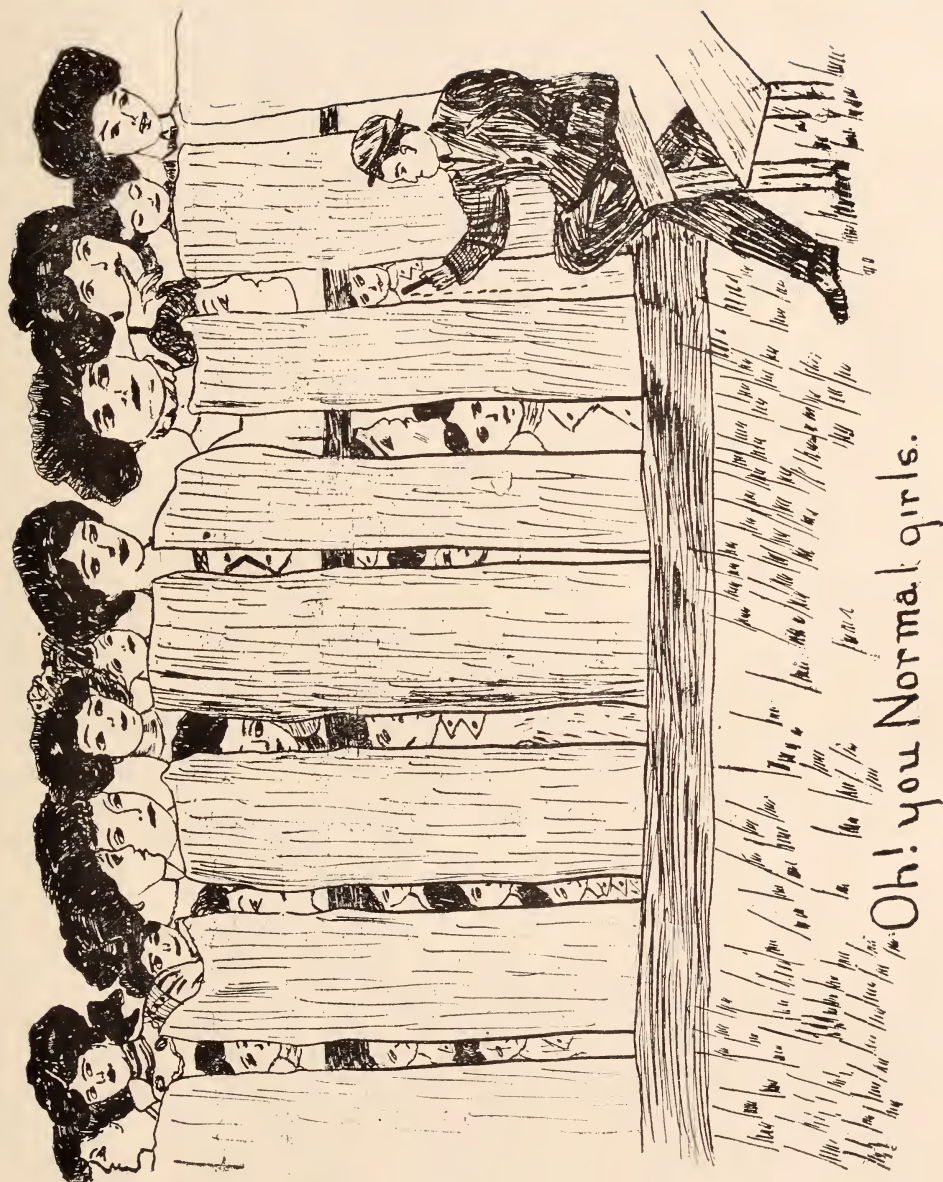 Oh! you Normal girls.